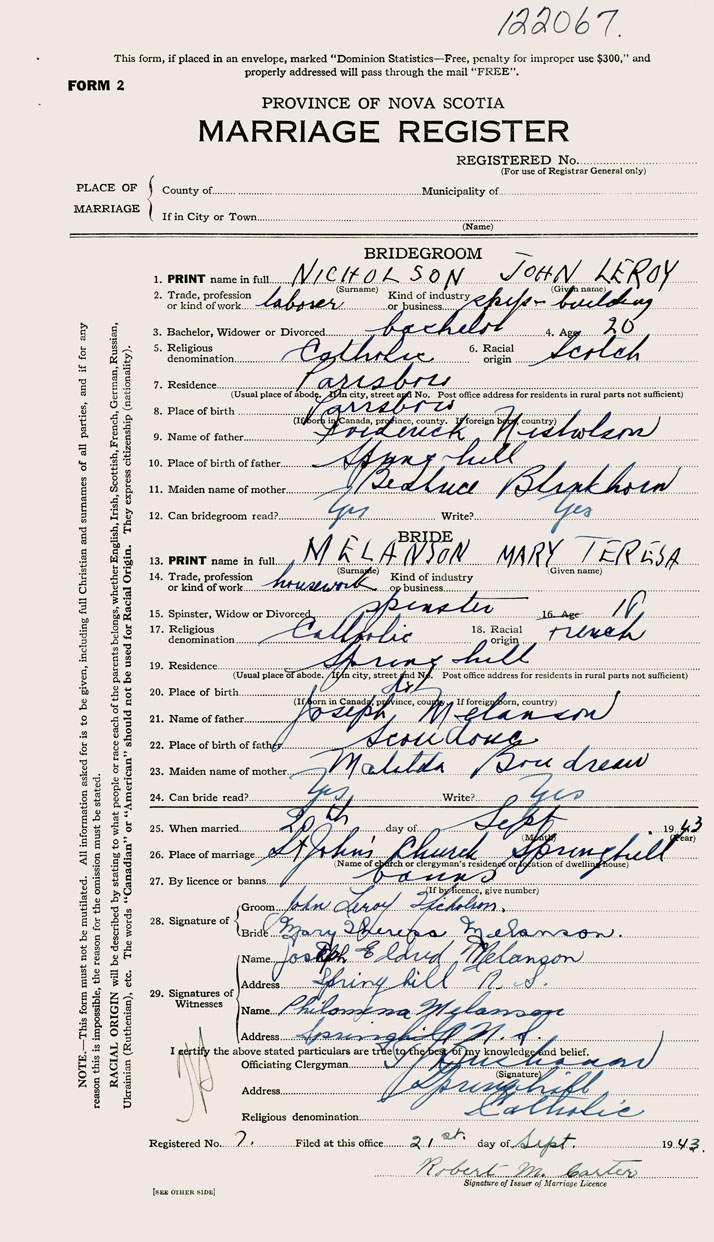 122067.
This form, if placed in an envelope, marked "Dominion Statistics—Free, penalty for improper use $300," and
properly addressed will pass through the mail "FREE".
FORM 2
PROVINCE OF NOVA SCOTIA
MARRIAGE REGISTER
REGISTERED No.
(For use of Registrar General only)
PLACE OF MARRIAGE
County of Municipality of
If in City or Town
(Name)
BRIDEGROOM
1. PRINT name in full NICHOLSON JOHN LEROY
(Surname) (Given name)
2. Trade, profession or kind of work laborer Kind of industry or business ship-building
3. Bachelor, Widower or Divorced bachelor 4. Age 20
5. Religious denomination Catholic 6. Racial origin Scotch
7. Residence Parrsboro
(Usual place of abode. If in city, street and No. Post office address for residents in rural parts not sufficient)
8. Place of birth Parrsboro
(If born in Canada, province, county. If foreign born, country)
9. Name of father Roderick Nicholson
10. Place of birth of father Spring hill
11. Maiden name of mother Beatrice Blinkhorn
12. Can bridegroom read? Yes Write? Yes
BRIDE
13. PRINT name in full MELANSON MARY TERESA
(Surname) (Given name)
14. Trade, profession or kind of work housework Kind of industry or business
15. Spinster, Widow or Divorced spinster 16. Age 18
17. Religious denomination Catholic 18. Racial origin French
19. Residence Spring hill
(Usual place of abode. If in city, street and No. Post office address for residents in rural parts not sufficient)
20. Place of birth
(If born in Canada, province, county. If foreign born, country)
21. Name of father Joseph Melanson
22. Place of birth of father Scoudouc
23. Maiden name of mother Matilda Boudreau
24. Can bride read? Yes Write? Yes
25. When married 20th day of Sept 1943
(Month) (Year)
26. Place of marriage St John's Church Springhill
(Name of church or clergyman's residence or location of dwelling house)
27. By licence or banns banns
(If by licence, give number)
28. Signature of
Groom John Leroy Nicholson.
Bride Mary Theresa Melanson.
29. Signatures of Witnesses
Name Joseph Eldred Melanson
Address Spring hill N. S.
Name Philomena Melanson
Address Springhill N. S.
I certify the above stated particulars are true to the best of my knowledge and belief.
Officiating Clergyman
(Signature)
Address Springhill
Religious denomination Catholic
Registered No. 7. Filed at this office 21st. day of Sept. 1943.
Robert M. Carter
Signature of Issuer of Marriage Licence
[SEE OTHER SIDE]
NOTE.—This form must not be mutilated. All information asked for is to be given, including full Christian and surnames of all parties, and if for any
reason this is impossible, the reason for the omission must be stated.
RACIAL ORIGIN will be described by stating to what people or race each of the parents belongs, whether English, Irish, Scottish, French, German, Russian,
Ukrainian (Ruthenian), etc. The words "Canadian" or "American" should not be used for Racial Origin. They express citizenship (nationality).